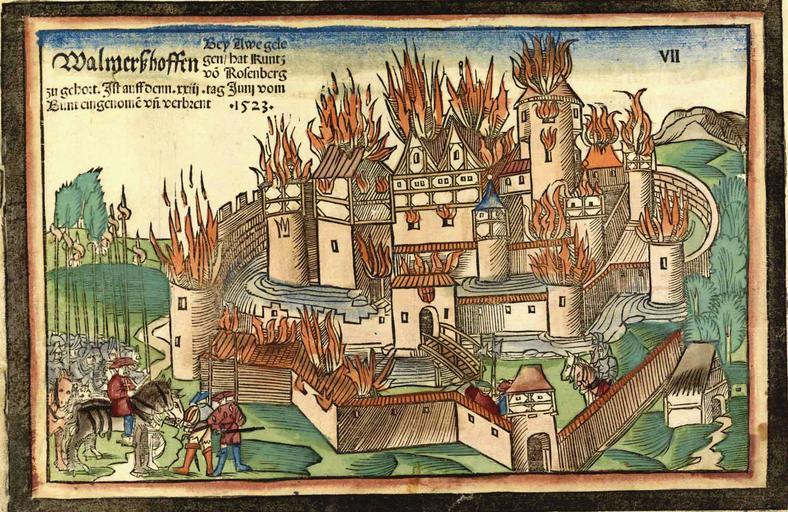 Walmerßhoffen Bey Awe gele
gen/ hat Kuntz
vō Rosenberg
zu gehort. Ist auff denn. xxiij .tag Junij vom
Bunt eingenomē vñ verbrent •1523•
VII